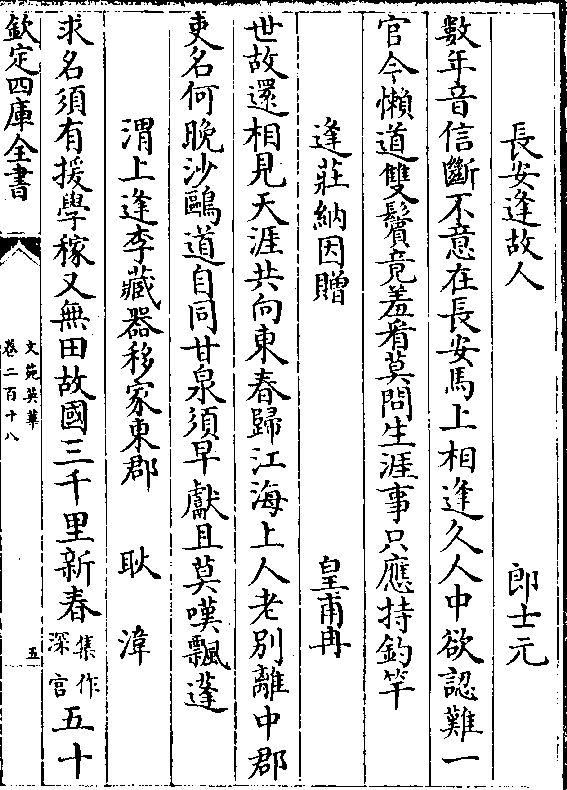 長安逢故人　郎士元
數年音信斷不意在長安馬上相逢久人中欲認難一
官今懶道雙鬢竟羞看莫問生涯事只應持釣竿
逢莊納因贈　皇甫冉
世故還相見天涯共向東春歸江海上人老別離中郡
吏名何晚沙鷗道自同甘泉須早獻且莫嘆飄蓬
渭上逢李藏器移家東郡　耿湋
求名須有援學稼又無田故國三千里新春集作深官五十
欽定四庫全書
文苑英華
卷二百十八
五